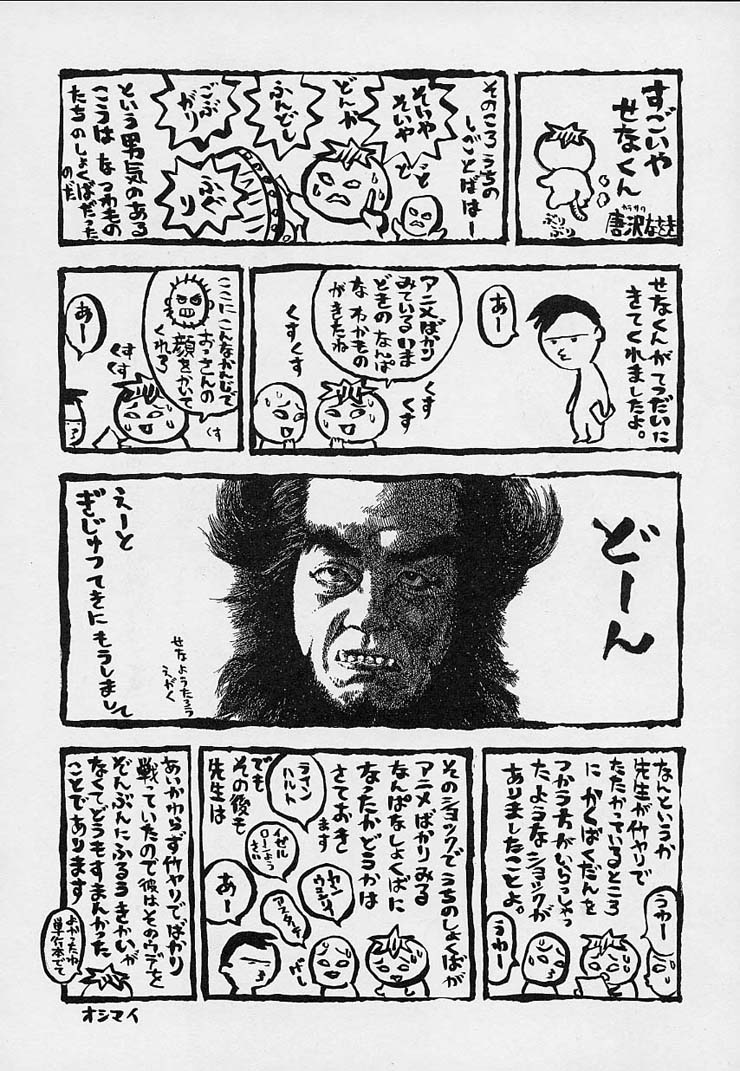 すごいや
せなくん
カラサワ
唐沢なをき
ぷりぷり
そのころうちの
しごとばはー
そいや
そいや
どんが
どんと
ふんどし
ごぶ
がり
ふぐり
という男気のある
こうはなつわもの
たちのしょくばだった
のだ
せなくんがてつだいに
きてくれましたよ。
あー
アニメばかり
みているいま
どきのなんぱ
なわかもの
がきたね
くすくす
くすくす
ここにこんなかんじで
おっさんの
顔をかいて
くれろ
くすくす
くす
あー
どーん
せなようたろう
えがく
えーと
ぎじゅつてきにもうしまして
なんというか
先生が竹ヤリで
たたかっているところ
にかくばくだんを
つかう方がいらっしゃっ
たようなショックが
ありましたことよ。
うわー
うわー
そのショックでうちのしょくばが
アニメばかりみる
なんぱなしょくばに
なったかどうかは
さておき
ます
でも
その後も
先生は
ライン
ハルト
イゼル
ローンよう
さい
ヤン
ウェンリー
アスターテ
あー
あいかわらず竹ヤリでばかり
戦っていたので彼はそのウデを
ぞんぶんにふるうきかいが
なくてどうもすまんかった
ことであります
よかったね
単行本でて
オシマイ